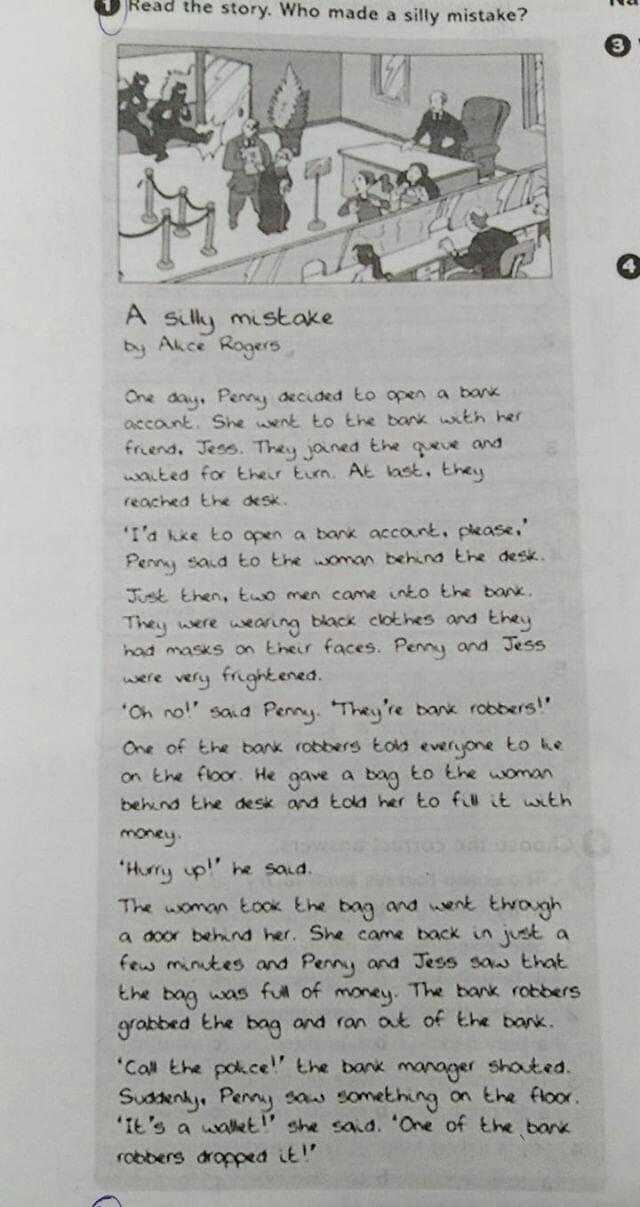 1 Read the story. Who made a silly mistake?
3
4
A silly mistake
by Alice Rogers
One day, Penny decided to open a bank
account. She went to the bank with her
friend, Jess. They joined the queue and
waited for their turn. At last, they
reached the desk.
'I'd like to open a bank account, please,'
Penny said to the woman behind the desk.
Just then, two men came into the bank.
They were wearing black clothes and they
had masks on their faces. Penny and Jess
were very frightened.
'Oh no!' said Penny. 'They're bank robbers!'
One of the bank robbers told everyone to lie
on the floor. He gave a bag to the woman
behind the desk and told her to fill it with
money.
'Hurry up!' he said.
The woman took the bag and went through
a door behind her. She came back in just a
few minutes and Penny and Jess saw that
the bag was full of money. The bank robbers
grabbed the bag and ran out of the bank.
'Call the police!' the bank manager shouted.
Suddenly, Penny saw something on the floor.
'It's a wallet!' she said. 'One of the bank
robbers dropped it!'